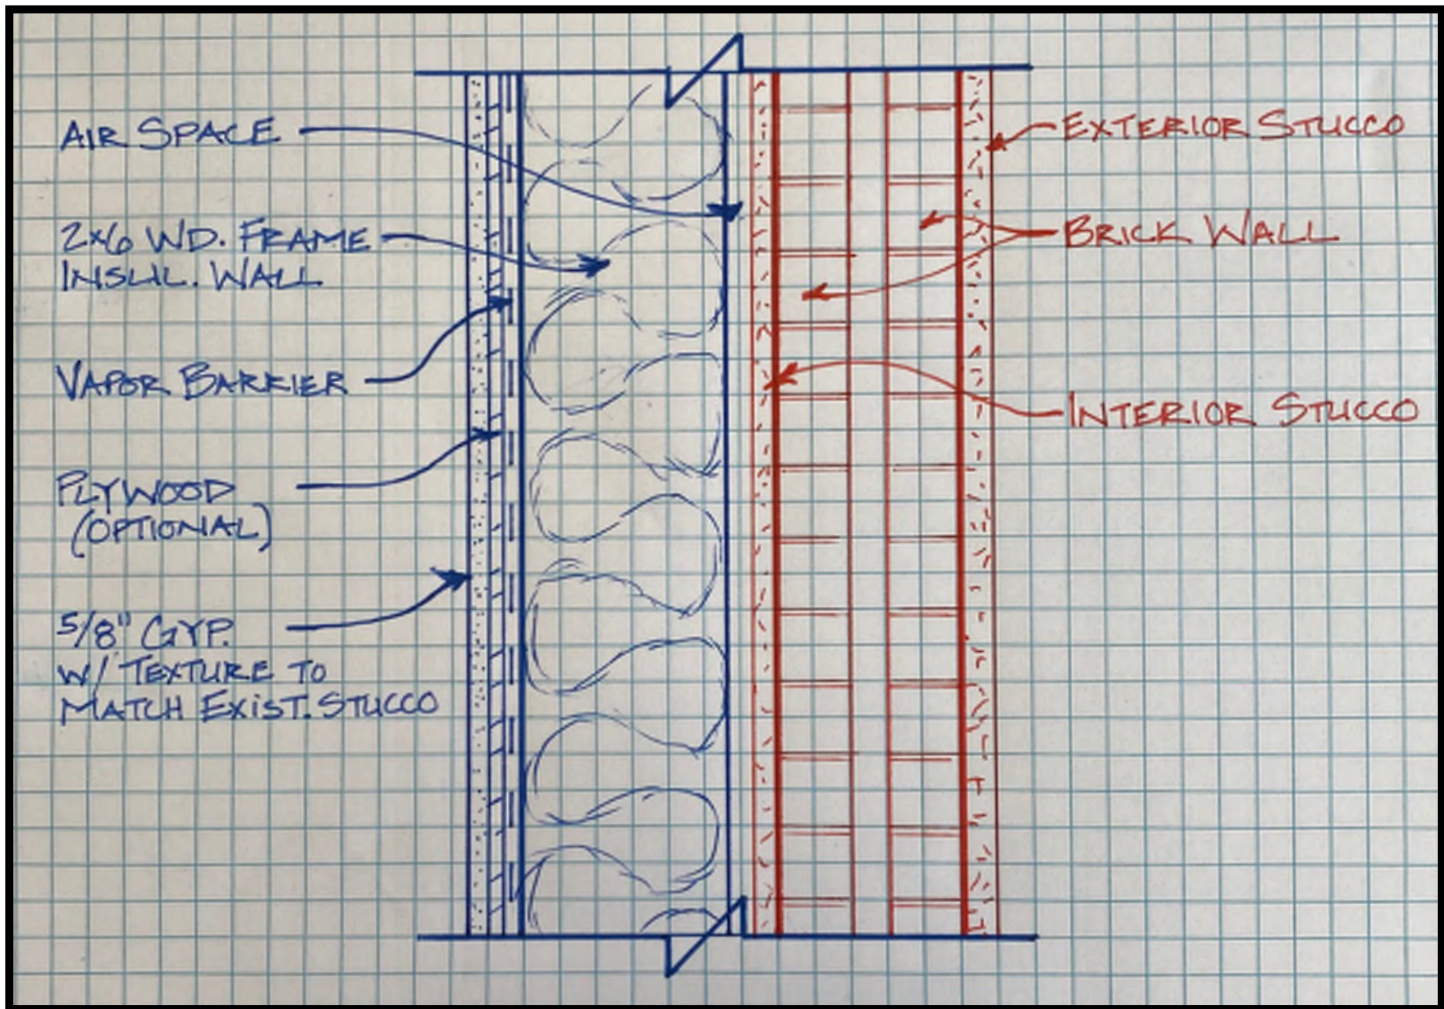 AIR SPACE
2x6 WD. FRAME
INSUL. WALL
VAPOR BARRIER
PLYWOOD
(OPTIONAL)
5/8" GYP.
W/ TEXTURE TO
MATCH EXIST. STUCCO
EXTERIOR STUCCO
BRICK WALL
INTERIOR STUCCO